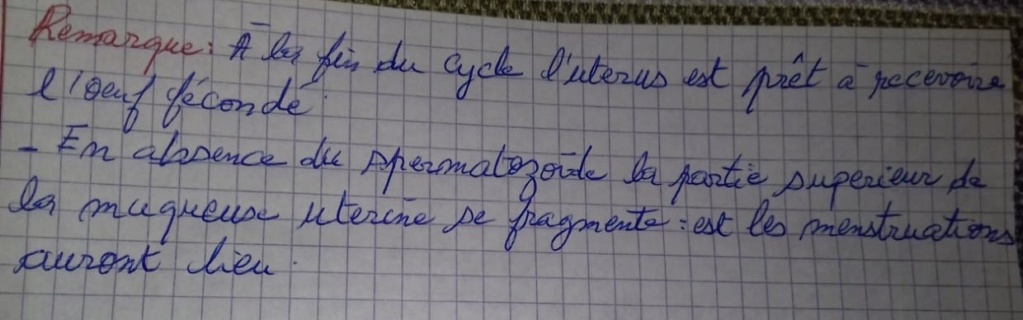 Remarque: À la fin du cycle l'uterus est prêt à recevoire
l'oeuf fécondé.
- En absence du spermatozoïde la partie superieur de
la muqueuse uterine se fragmente: est les menstruations
auront lieu.